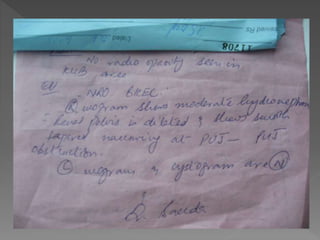 11708
No radio opacity seen in
KUB area
(R) urogram shows moderate hydroneph
Renal pelvis is dilated & shows smooth
tapered narrowing at PUJ — PUJ
obstruction.
(L) urogram & cystogram are (N)